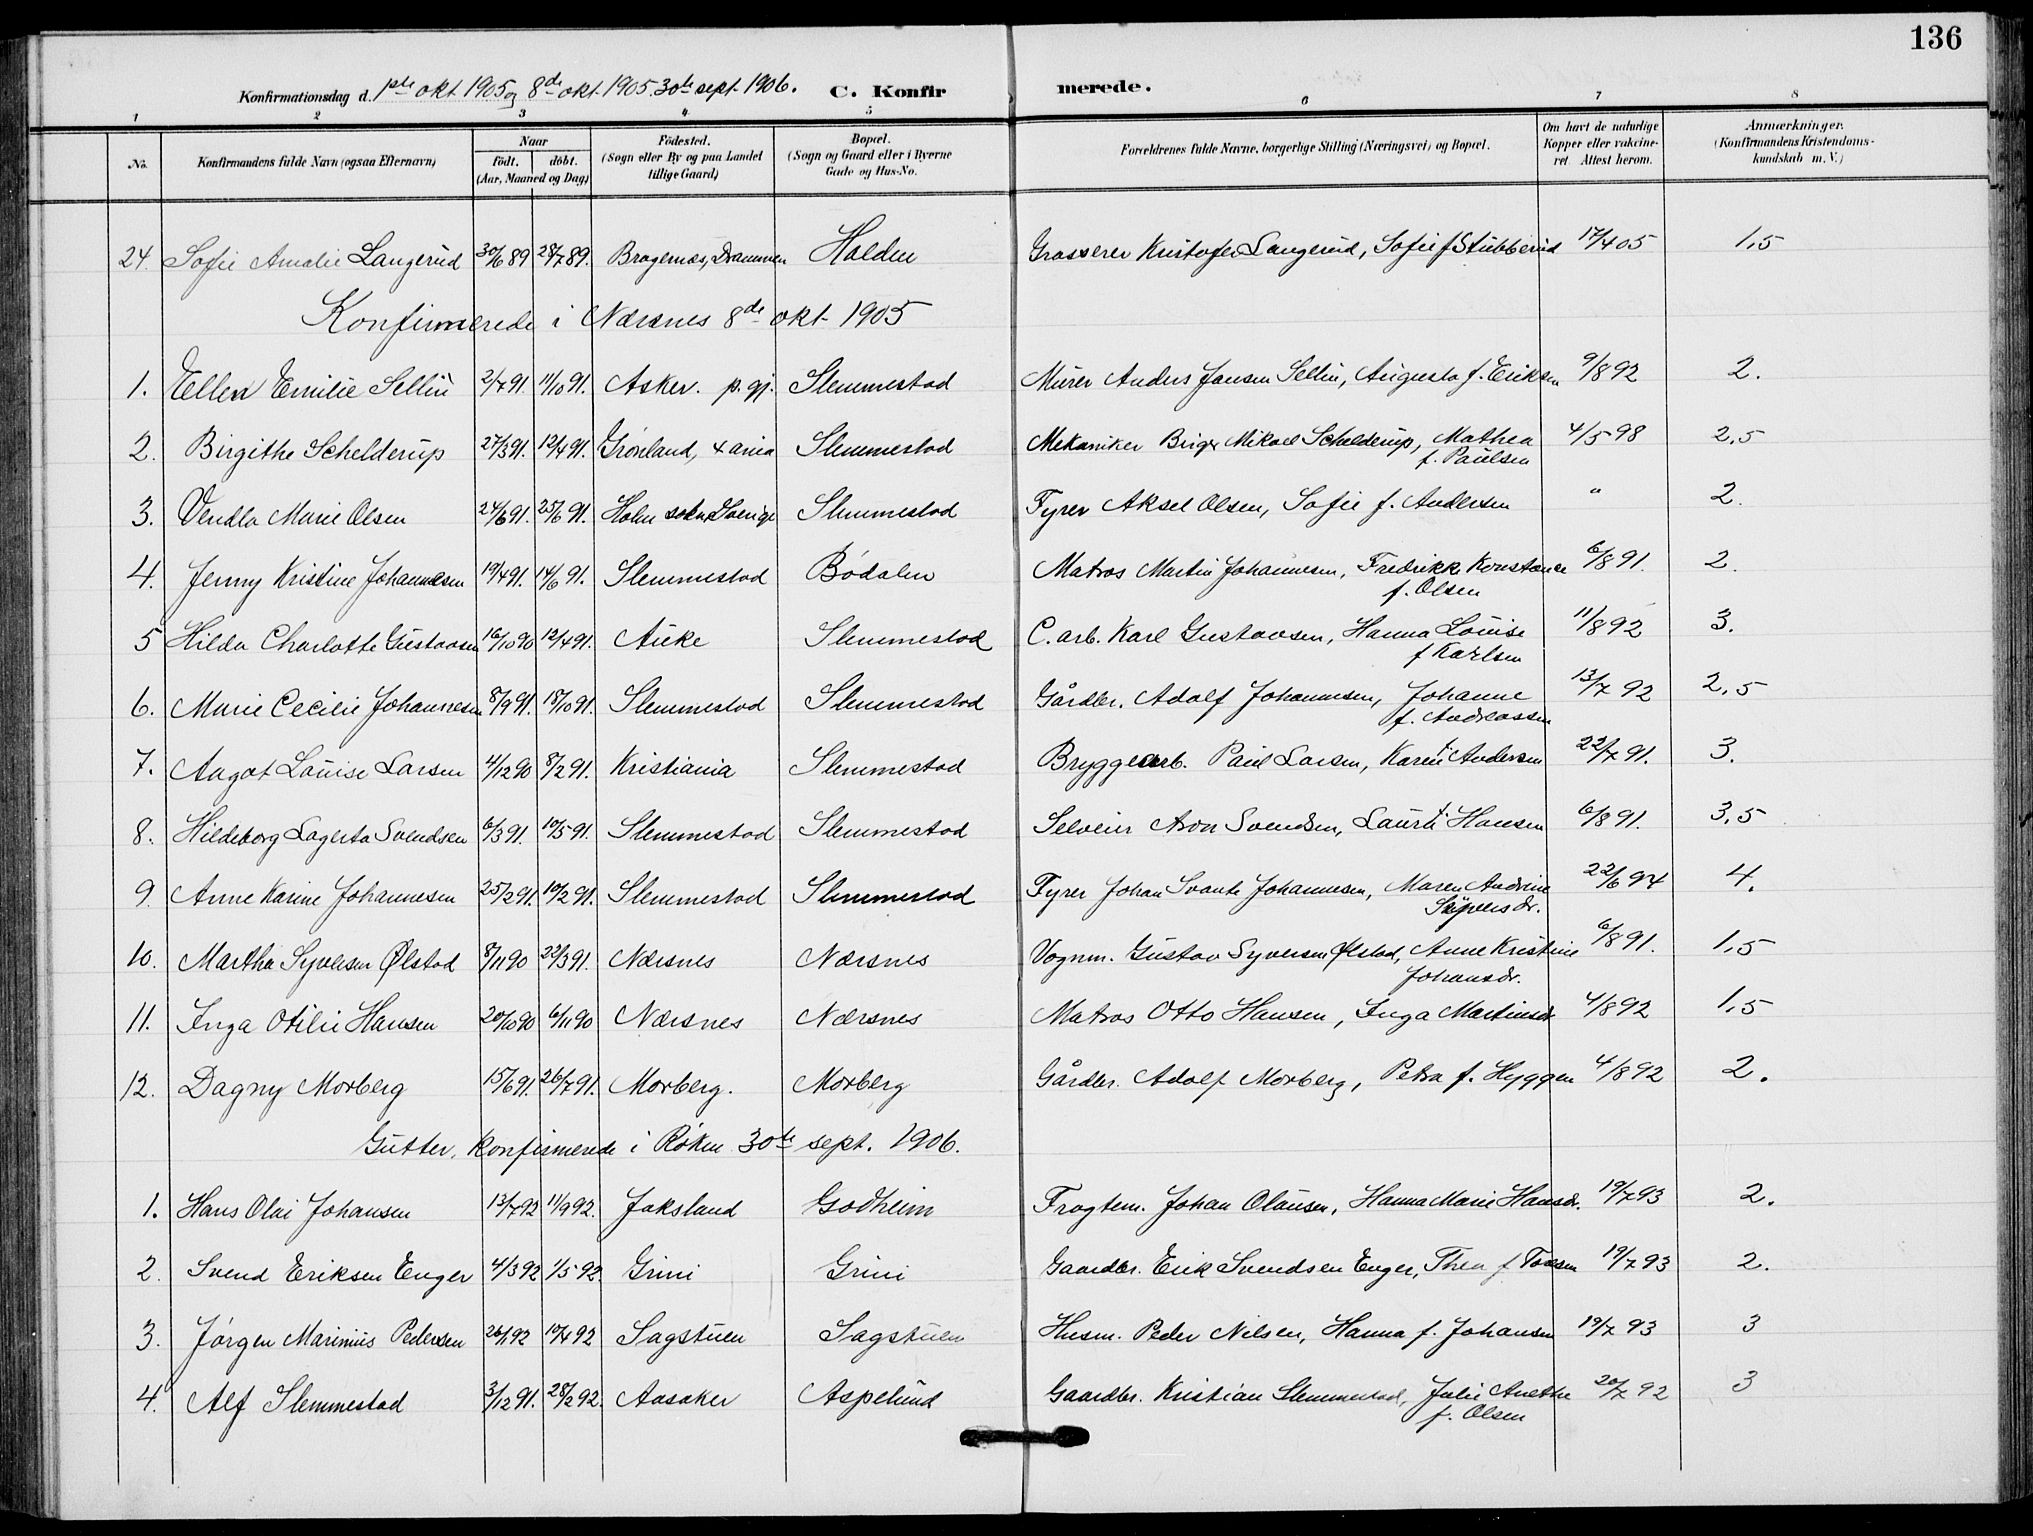 136
Konfirmationsdag d. 1ste okt 1905 og 8de okt. 1905. 30te sept. 1906. C. Konfir merede.
1 2 3 4 5 6 7 8
No. Konfirmandens fulde Navn (ogsaa Efternavn) Naar födt. döbt. (Aar, Maaned og Dag) Födested. (Sogn eller By og paa Landet tillige Gaard) Bopæl. (Sogn og Gaard eller i Byerne Gade og Hus-No. Forældrenes fulde Navne, borgerlige Stilling (Næringsvei) og Bopæl. Om havt de naturlige Kopper eller vakcineret. Attest herom. Anmærkninger. (Konfirmandens Kristendomskundskab m. V.)
24. Sofie Amalie Langerud 30/6 89 28/7 89. Bragernæs, Drammen Halden Grosserer Kristofer Langerud, Sofie f Stubberud 17/4 05 1,5
Konfirmerede i Nærsnes 8de okt 1905
1. Ellen Emilie Sellin 2/7 91. 11/10 91. Asker. p. gj. Slemmestad Murer Anders Jansen Sellin, Augusta f. Eriksen 9/8 92 2.
2. Birgithe Schelderup 27/3 91. 12/4 91. Grønland, Xania Slemmestad Mekaniker Birger Mikael Schelderup, Mathea f. Paulsen 4/5 98 2,5
3. Vendla Marie Olsen 24/6 91. 25/6 91. Holm sokn, Sverige Slemmestad Fyrer Aksel Olsen, Sofie f. Andersen " 2.
4. Jenny Kristine Johannesen 19/4 91. 14/6 91. Slemmestad Bödalen Matros Martin Johannesen, Fredrikke Konstance f. Olsen 6/8 91. 2.
5 Hilda Charlotte Gustavsen 16/10 90 12/4 91. Auke Slemmestad C. arb. Karl Gustavsen, Hanna Louise f Karlsen 11/8 92 3.
6. Marie Cecilie Johannesen 8/9 91. 18/10 91. Slemmestad Slemmestad Gårdbr. Adolf Johannesen, Johanne f. Andreassen 13/7 92 2,5
7. Aagot Louise Larsen 4/12 90 8/2 91. Kristiania Slemmestad Bryggearb. Paul Larsen, Karen f. Andersen 22/7 91. 3.
8. Hildeborg Lagerta Svendsen 6/3 91. 10/5 91. Slemmestad Slemmestad Selveier Aron Svendsen, Laura f. Hansen 6/8 91. 3,5
9 Anne Karine Johannesen 25/2 91. 10/2 91. Slemmestad Slemmestad Fyrer Johan Svante Johannesen, Maren Andrine Sypersdr. 22/6 94 4.
10. Martha Syversen Ølstad 8/11 90 22/3 91. Nærsnes Nærsnes Vognm. Gustav Syversen Ølstad, Anne Kristine Johansdr. 6/8 91. 1,5
11. Inga Otilie Hansen 20/10 90 6/11 90 Nærsnes Nærsnes Matros Otto Hansen, Inga Martinsdr 4/8 92 1,5
12. Dagny Morberg 15/6 91. 26/7 91. Morberg. Morberg Gårdbr. Adolf Morberg, Petra f. Hyggen 4/8 92 2.
Gutter, konfirmerede i Røken 30te sept. 1906.
1. Hans Olai Johansen 13/7 92 11/9 92. Jaksland Godheim Frogtem. Johan Olausen, Hanna Marie Hansdr. 19/7 93 2.
2. Svend Eriksen Enger 4/3 92 1/5 92 Grini Grini Gaardbr. Erik Svendsen Enger, Thea f 19/7 93 2.
3. Jørgen Marinius Pedersen 26/1 92 10/4 92 Sagstuen Sagstuen Husm. Peder Nilsen, Hanna f. Johansen 19/7 93 3
4. Alf Slemmestad 3/12 91. 28/2 92. Aasaker Aspelund Gaardbr. Kristian Slemmestad, Julie Anethe f. Olsen 20/7 92 3